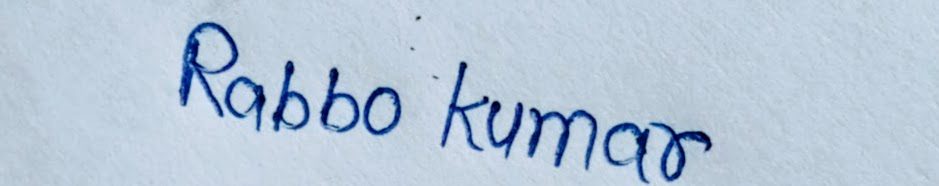 Rabbo kumar